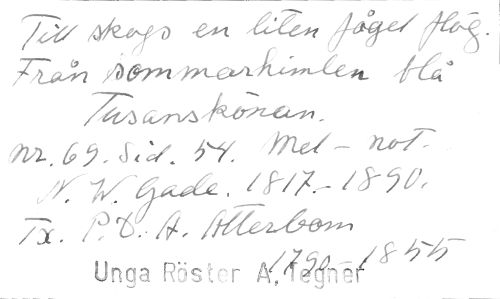 Till skogs en liten fågel flög.
Från sommarhimlen blå
Tusanskönan.
nr. 69. Sid. 54. Mel - not.
N. W. Gade. 1817.-1890.
Tx. P.D. A. Atterbom
1790-1855
Unga Röster A. Tegnér